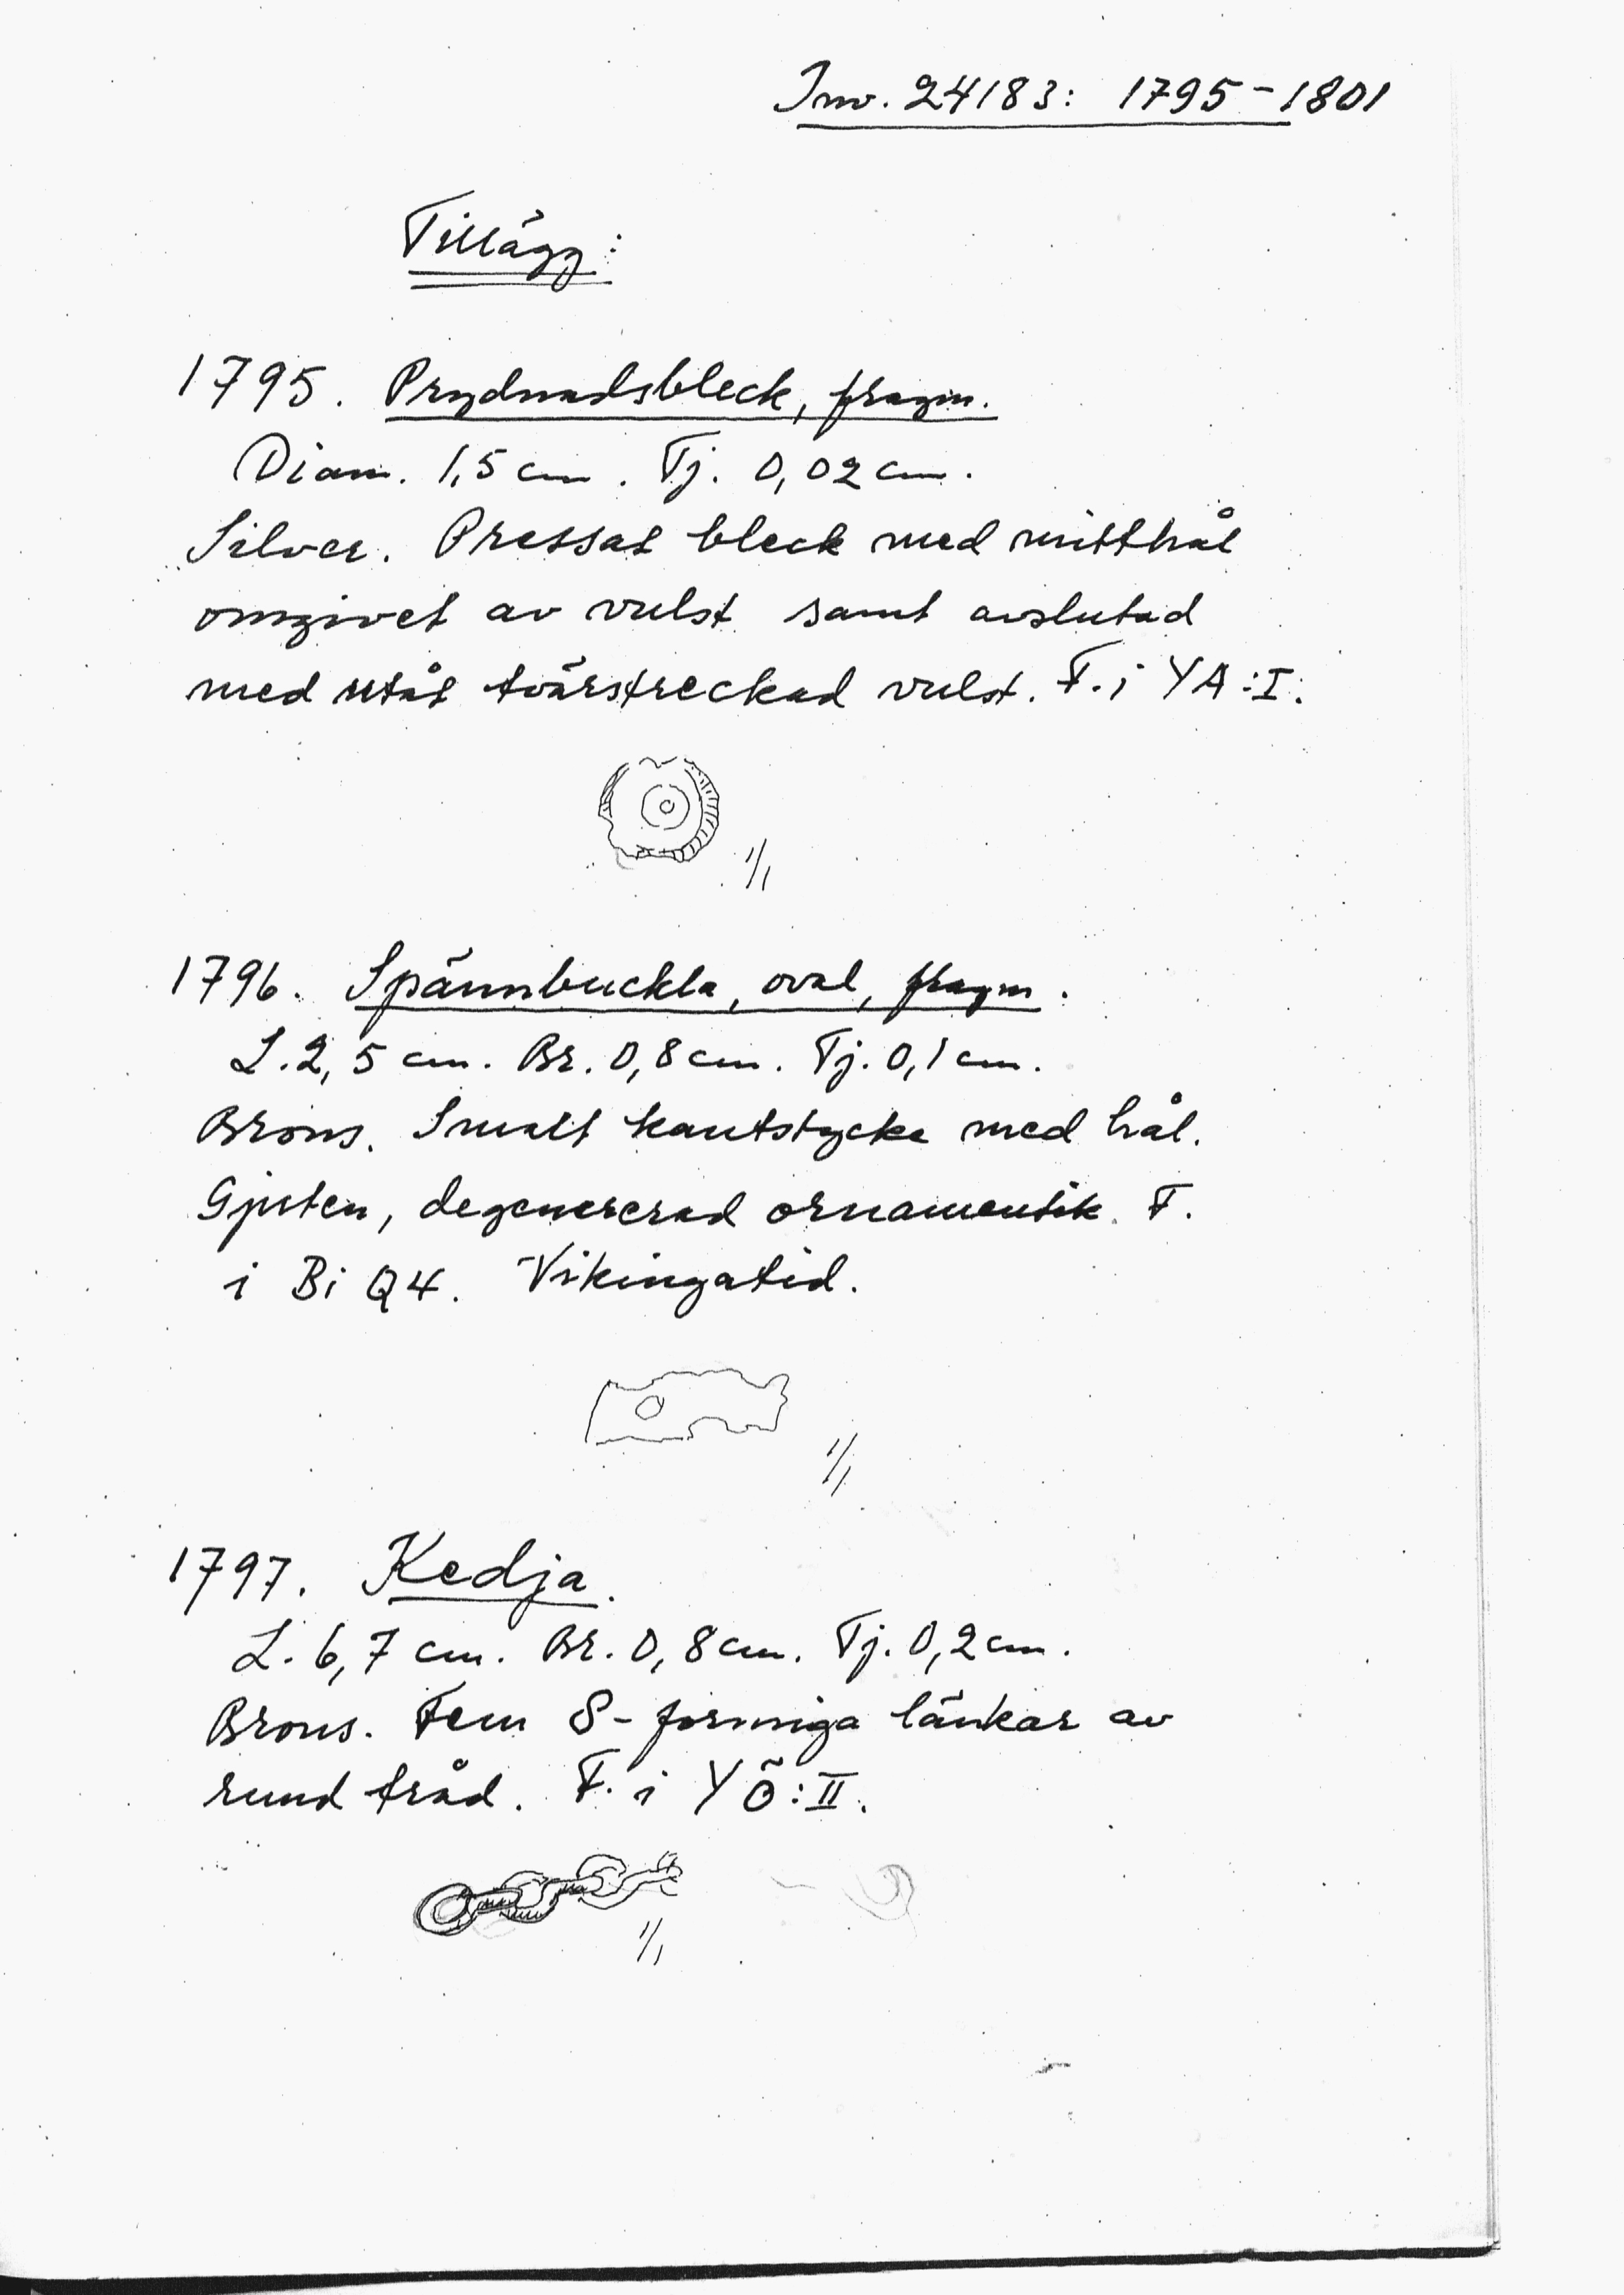 Inv. 24183: 1795-1801
Tillägg:
1795. Prydnadsbleck, fragm.
Diam. 1,5 cm. Tj. 0,02 cm.
Silver. Pressat bleck med mitthål
omgivet av vulst samt avslutad
med utåt tvärstreckad vulst. F. i YA:I.
1/1
1796. Spännbuckla, oval, fragm.
L. 2,5 cm. Br. 0,8 cm. Tj. 0,1 cm.
Brons. Smalt kantstycke med hål.
Gjuten, degenererad ornamentik. F.
i Bi Q4. Vikingatid.
1/1
1797. Kedja.
L. 6,7 cm. Br. 0,8 cm. Tj. 0,2 cm.
Brons. Fem S-formiga länkar av
rund tråd. F. i YÖ:II.
1/1